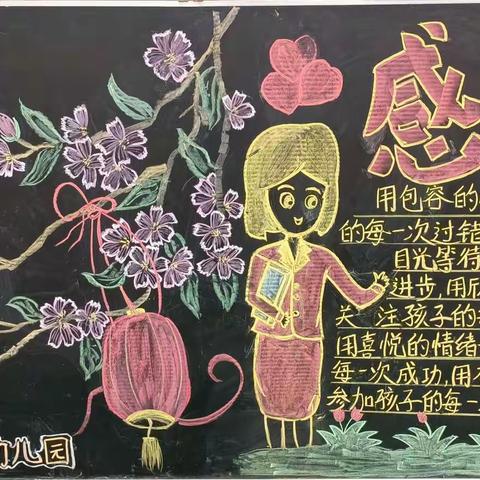 感
用包容的
的每一次过错
目光等待
进步,用欣
关注孩子的
用喜悦的情绪
每一次成功,用
参加孩子的每一
幼儿园